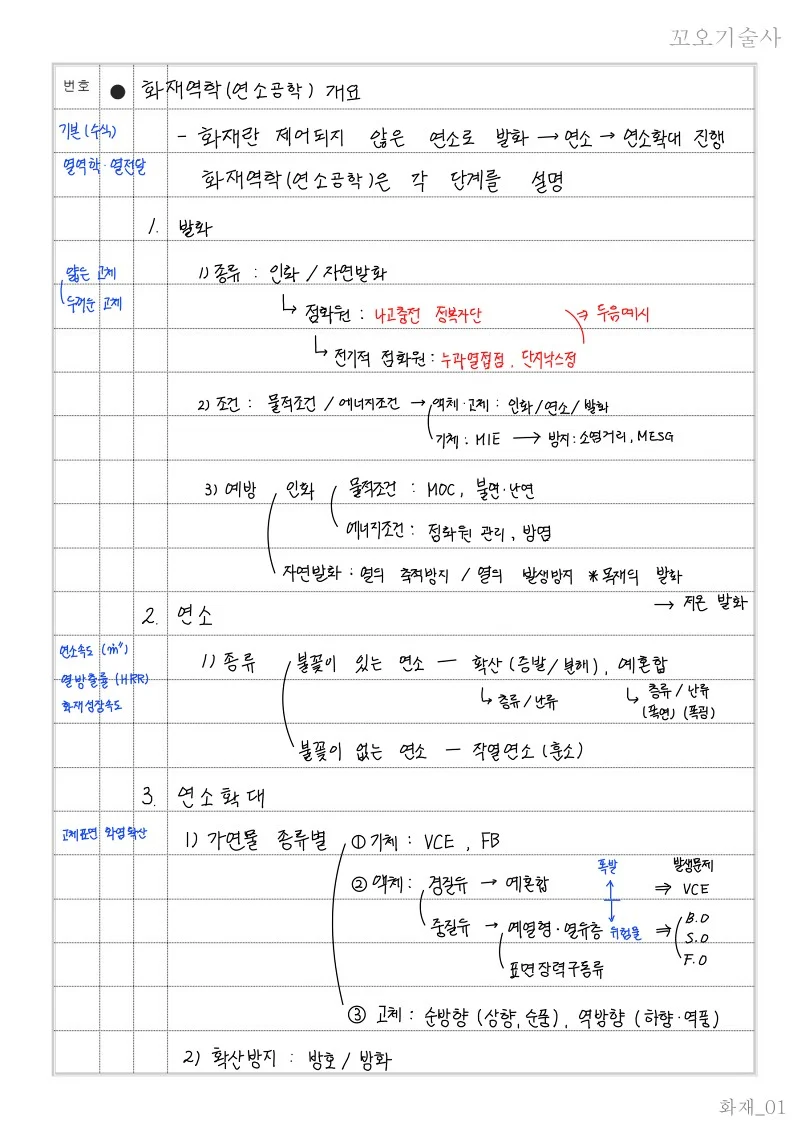 꼬오기술사
번호 ● 화재역학(연소공학) 개요
기본(수식) - 화재란 제어되지 않은 연소로 발화 → 연소 → 연소확대 진행
열역학·열전달 화재역학(연소공학)은 각 단계를 설명
1. 발화
얇은 고체 1) 종류 : 인화 / 자연발화
두꺼운 고체 ↳ 점화원 : 나고충전 정복자단 ⇒ 두음예시
↳ 전기적 점화원 : 누과열접점, 단지낙스정
2) 조건 : 물적조건 / 에너지조건 → 액체·고체 : 인화/연소/발화
기체 : MIE → 방지 : 소염거리, MESG
3) 예방 인화 물적조건 : MOC, 불연·난연
에너지조건 : 점화원 관리, 방염
자연발화 : 열의 축적방지 / 열의 발생방지 * 목재의 발화
→ 저온 발화
2. 연소
연소속도 (ṁ") 1) 종류 불꽃이 있는 연소 ─ 확산 (증발/분해), 예혼합
열방출률 (HRR)
화재성장속도 ↳ 층류/난류 ↳ 층류/난류
(폭연) (폭굉)
불꽃이 없는 연소 ─ 작열연소 (훈소)
3. 연소확대
고체표면 화염확산 1) 가연물 종류별 ① 기체 : VCE, FB
폭발 발생문제
② 액체 : 경질유 → 예혼합 ⇒ VCE
중질유 → 예열형·열유층 위험물 ⇒ B.O
S.O
표면장력구동류 F.O
③ 고체 : 순방향 (상향, 순풍), 역방향 (하향·역풍)
2) 확산방지 : 방호 / 방화
화재_01